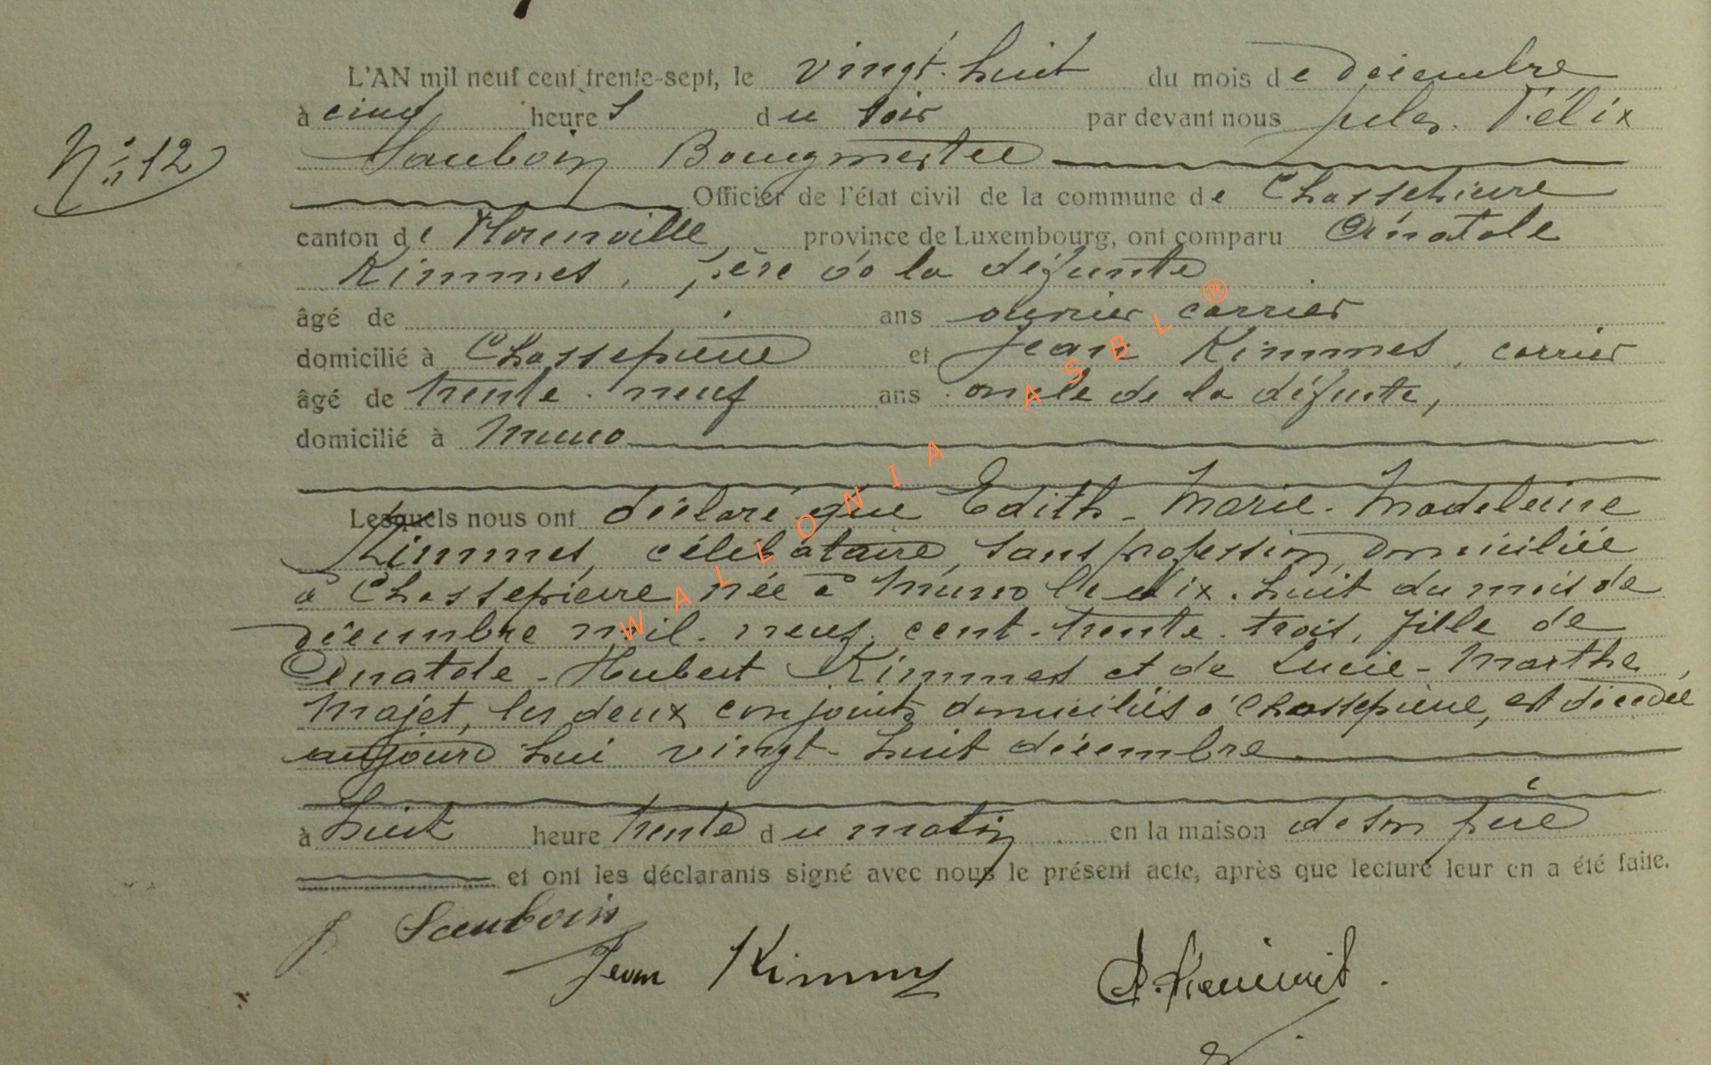 L'AN mil neuf cent trente-sept, le vingt-huit du mois de décembre
à cinq heures du soir par devant nous Jules Félix
Nº 12
Sauboin Bourgmestre
Officier de l'état civil de la commune de Chassepierre
canton de Florenville, province de Luxembourg, ont comparu Anatole
Kimmes, père de la défunte
âgé de ans ouvrier carrier
domicilié à Chassepierre et Jean Kimmes, carrier
âgé de trente-neuf ans oncle de la défunte,
domicilié à Muno
Lesquels nous ont déclaré que Edith-Marie-Madeleine
Kimmes, célibataire, sans profession, domiciliée
à Chassepierre née à Muno le dix-huit du mois de
décembre mil-neuf-cent-trente-trois, fille de
Anatole-Hubert Kimmes et de Lucie-Marthe
Majet, les deux conjoints domiciliés à Chassepierre, est décédée
aujourd'hui vingt-huit décembre
à huit heure trente du matin en la maison de son père
et ont les déclarants signé avec nous le présent acte, après que lecture leur en a été faite.
J. Sauboin
Jean Kimmes
WALLONIA ASBL®